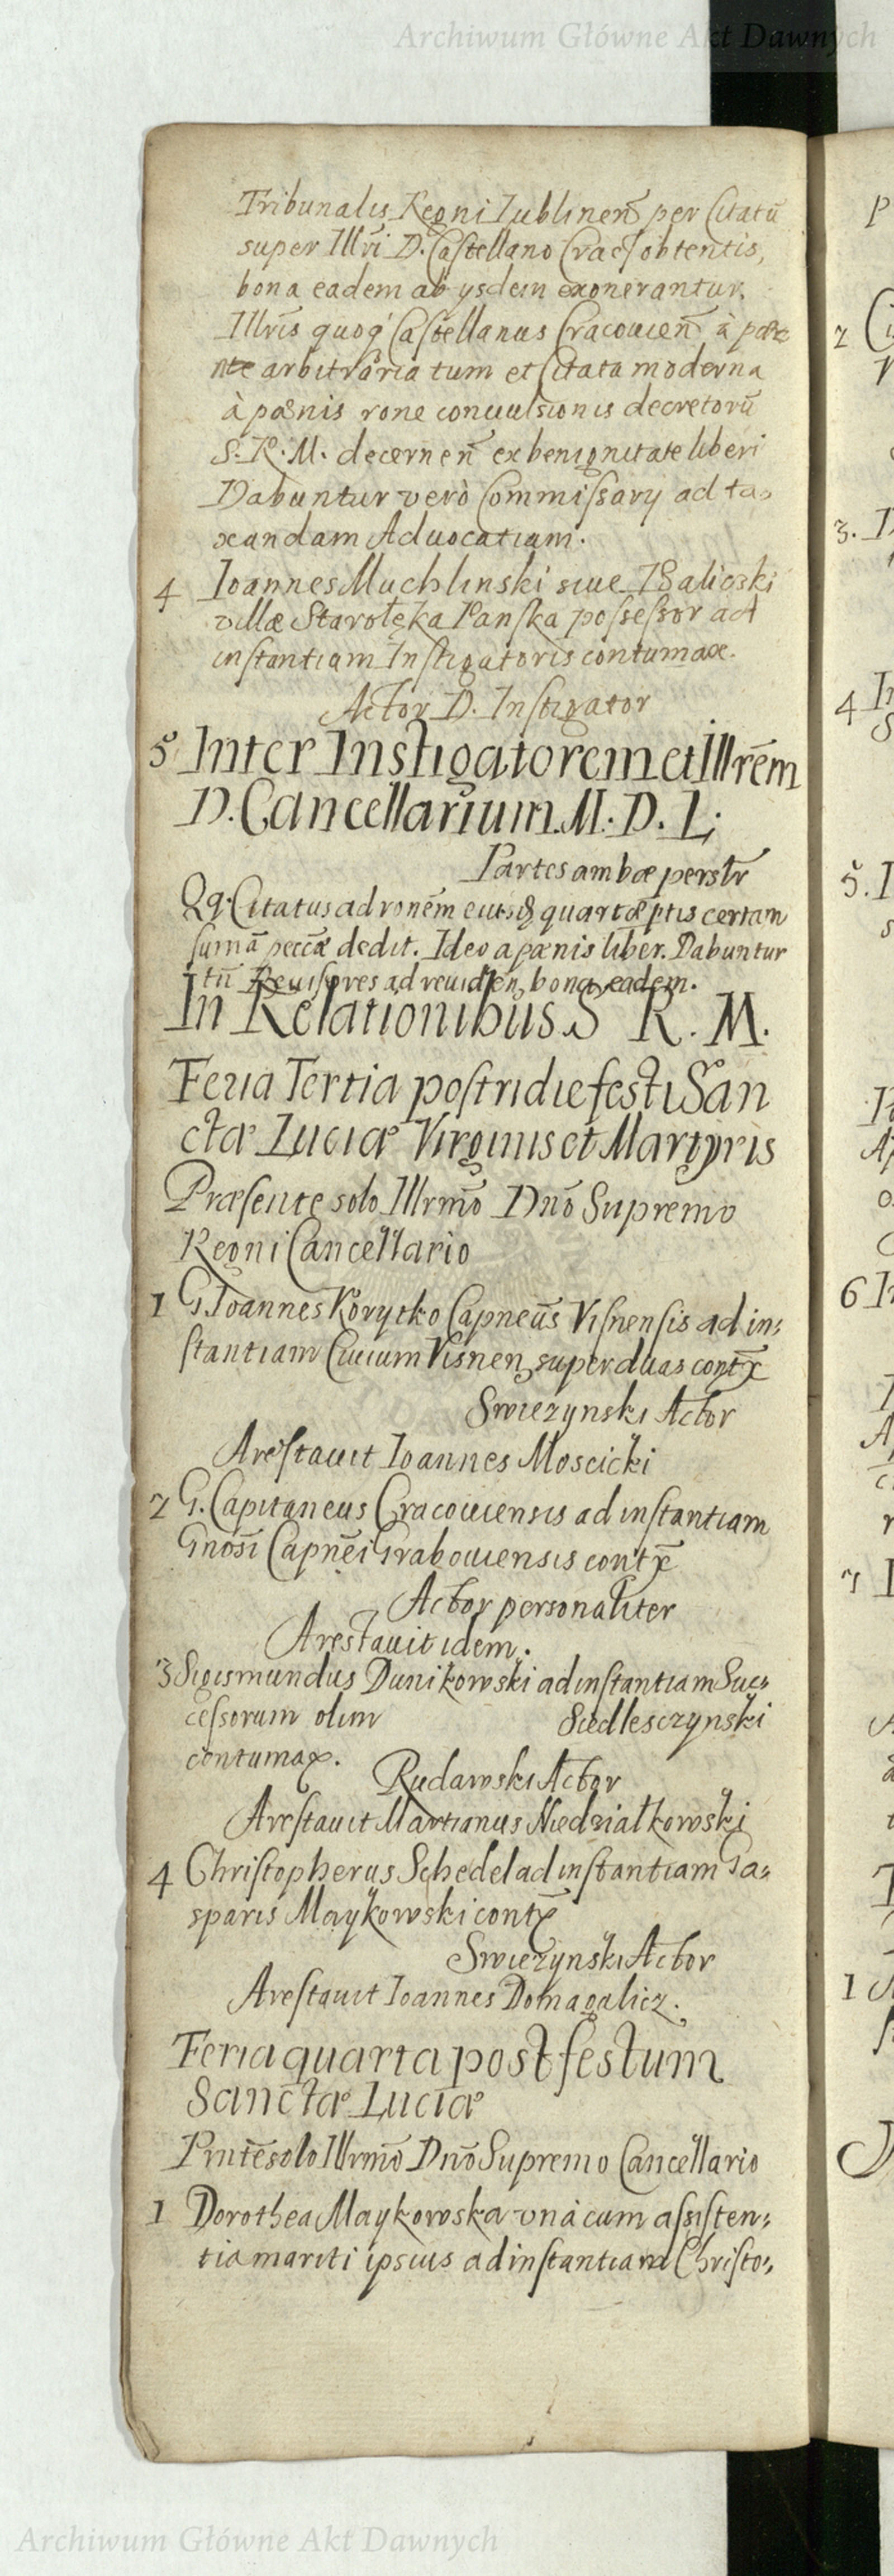 Archiwum Główne Akt Dawnych
Tribunalis Regni Lublineñ per Citatũ
super Illr̃i D. Castellano Crac obtentis,
bona eadem ab ysdem exonerantur.
Illr̃is quoq Castellanus Cracouieñ à
arbitraria tum et Citata moderna
à pœnis rone conuulsionis decretorũ
S. R. M. decerneñ ex benignitate liberi
Dabuntur verò Commissary ad ta-
xandam Aduocatiam.
4 Ioannes Muchlinski siue
villæ Starolęka Panska possessor ad
instantiam Instigatoris contumax.
Actor D. Instigator
5 Inter Instigatorem et Illrẽm
D. Cancellarium M. D. L.
Partes ambæ perstr̃
Qq. Citatus ad ronẽm quartæ ptis certam
sum̃a dedit. Ideo a pœnis liber. Dabuntur
tñ Reuisores ad reuiden bona eadem.
In Relationibus S R. M.
Feria Tertia postridie festi San
ctæ Luciæ Virginis et Martyris
Præsente solo Illrm̃o Dnõ Supremo
Regni Cancellario
1 G. Ioannes Korytko Capneũs Visnensis ad in-
stantiam Ciuium Visnen super duas contx̃
Swiezynski Actor
Arestauit Ioannes Moscicki
2 G. Capitaneus Cracouiensis ad instantiam
Gnosĩ Capnẽi Grabouiensis contx̃
Actor personaliter
Arestauit idem.
3 Sigismundus Dunikowski ad instantiam Suc-
cessorum olim Siedlesczynski
contumax.
Rudawski Actor
Arestauit Martianus Niedzialkowski
4 Christopherus Schedel ad instantiam Ga-
sparis Maykowski contx̃
Swiezynski Actor
Arestauit Ioannes Domagalicz.
Feria quarta post festum
Sanctæ Luciæ
Prntẽ solo Illrm̃o Dnõ Supremo Cancellario
1 Dorothea Maykowska vnà cum assisten-
tia mariti ipsius ad instantiam Christo-
Archiwum Główne Akt Dawnych